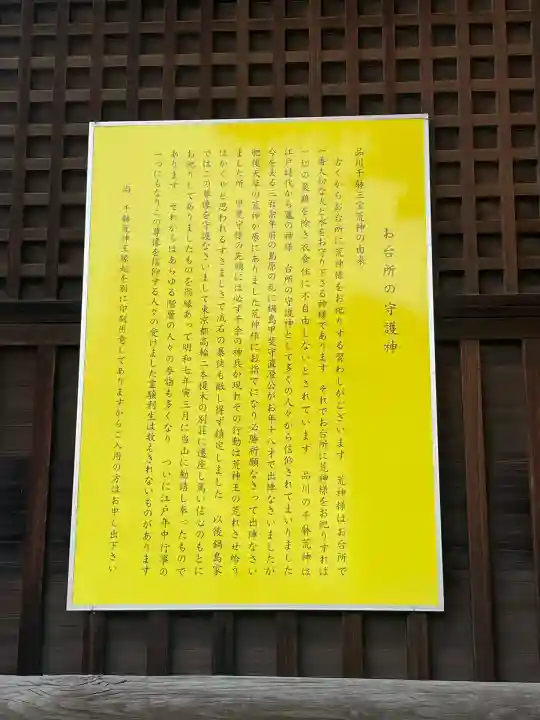 お台所の守護神
品川千躰三宝荒神の由来
古くからお台所に荒神様をお祀りする習わしがございます 荒神様はお台所で
一番大切な火と水をお守り下さる神様であります それでお台所に荒神様をお祀りすれば
一切の災難を除き衣食住に不自由しないとされています 品川の千躰荒神は
江戸時代から竈の神様 台所の守護神として多くの人々から信仰されてまいりました
今を去る三百余年前の島原の乱に鍋島甲斐守直澄公がお年十八才で出陣なさいましたが
肥後天草の荒神が原にありました荒神様にお詣でになり必勝祈願なさって出陣なさい
ました所 甲斐守様の先頭には必ず千余の神兵が現れその行動は荒神王の荒れさせ給う
はかくやと思われるすさまじさで流石の暴徒も敵し得ず鎮定しました 以後鍋島家
ではこの尊像を守護なさいまして東京都高輪二本榎木の別荘に遷座し篤い信心のもとに
お祀りしてありましたものを因縁あって明和七年寅三月に当山に勧請し奉ったもので
あります それからはあらゆる階層の人々の参詣も多くなり ついに江戸年中行事の
一つにもなりこの尊像を信仰する人々の受けました霊験利生は数えきれないものがあります
尚 千躰荒神王縁起を別に印刷用意してありますからご入用の方はお申し出下さい